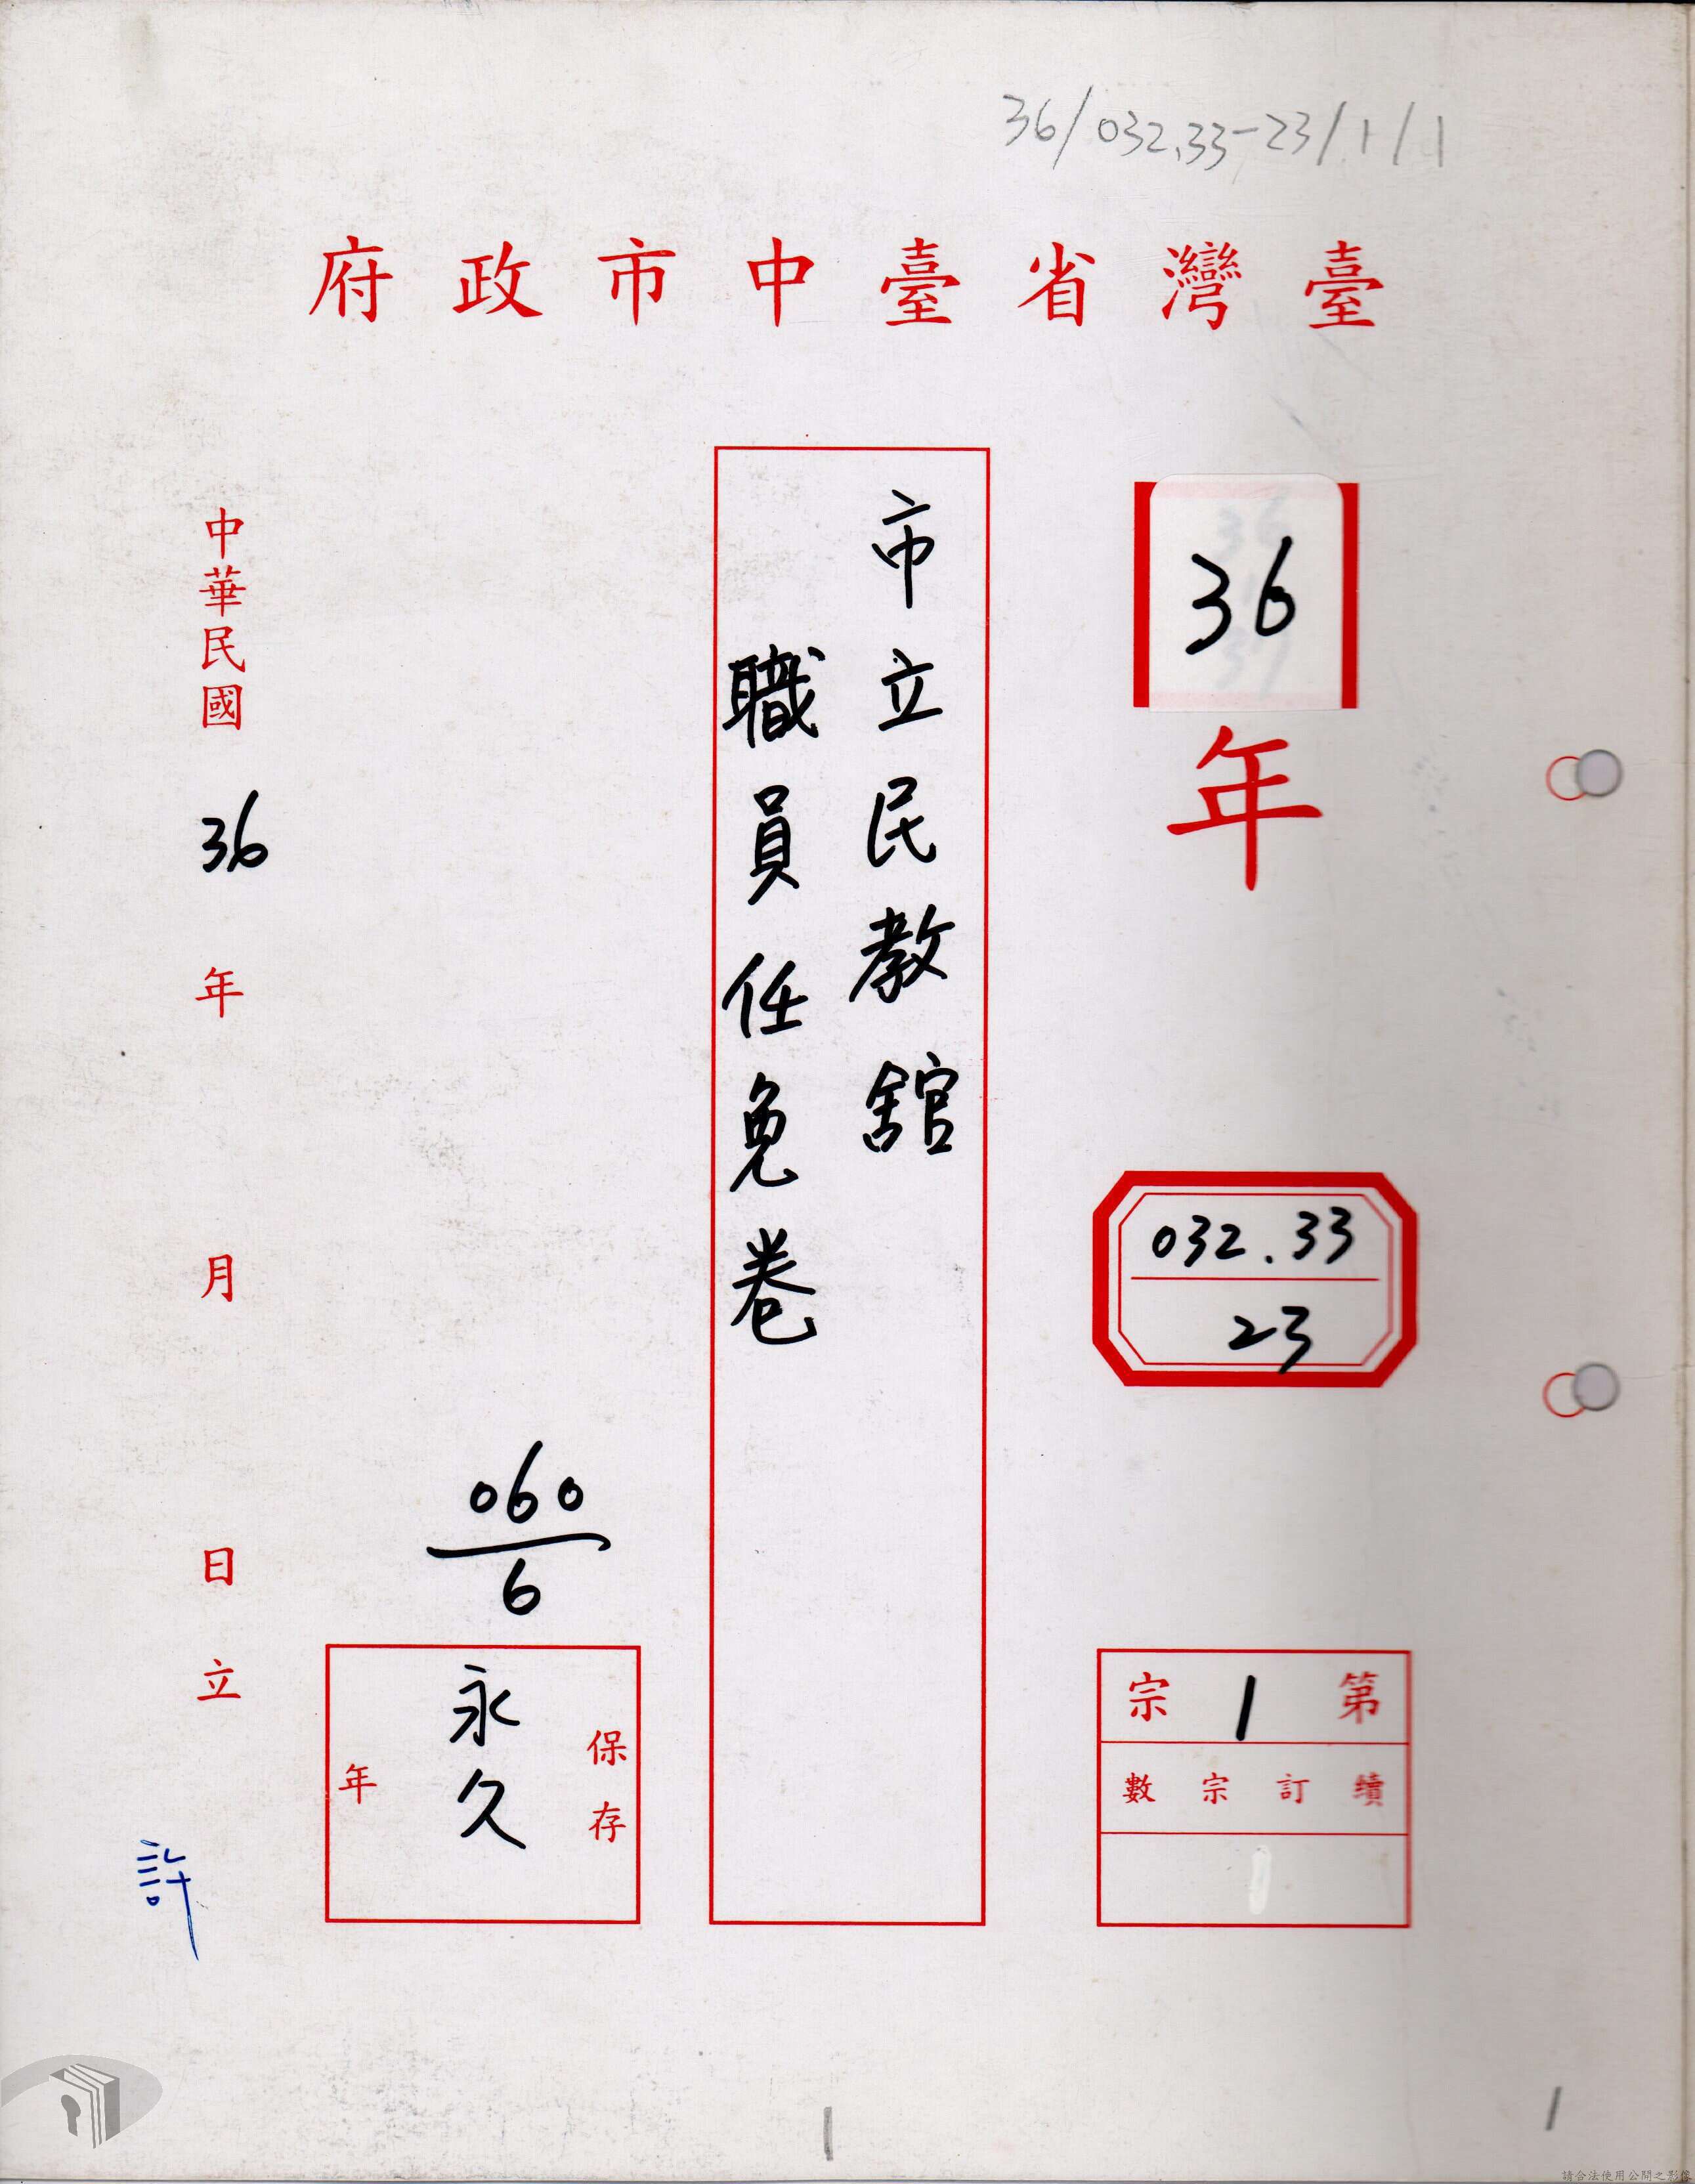 36/032.33-23/1/1
臺灣省臺中市政府
36
年
032.33
23
第1宗
續訂宗數
1
市立民教舘
職員任免卷
060
6
保存
永久
年
中華民國36年 月 日立
許
1
1
請合法使用公開之影像